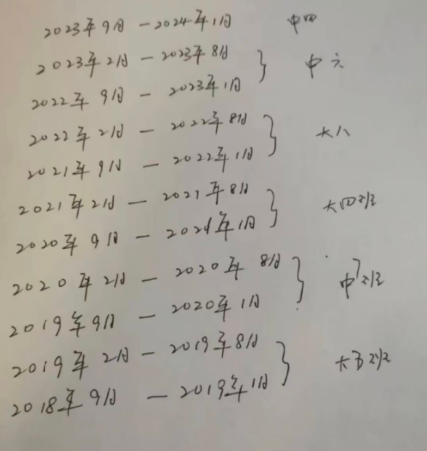 2023年9月 — 2024年1月 中四
2023年2月 — 2023年8月
2022年9月 — 2023年1月 } 中六
2022年2月 — 2022年8月
2021年9月 — 2022年1月 } 大八
2021年2月 — 2021年8月
2020年9月 — 2021年1月 } 大四班
2020年2月 — 2020年8月
2019年9月 — 2020年1月 } 中7班
2019年2月 — 2019年8月
2018年9月 — 2019年1月 } 大五班